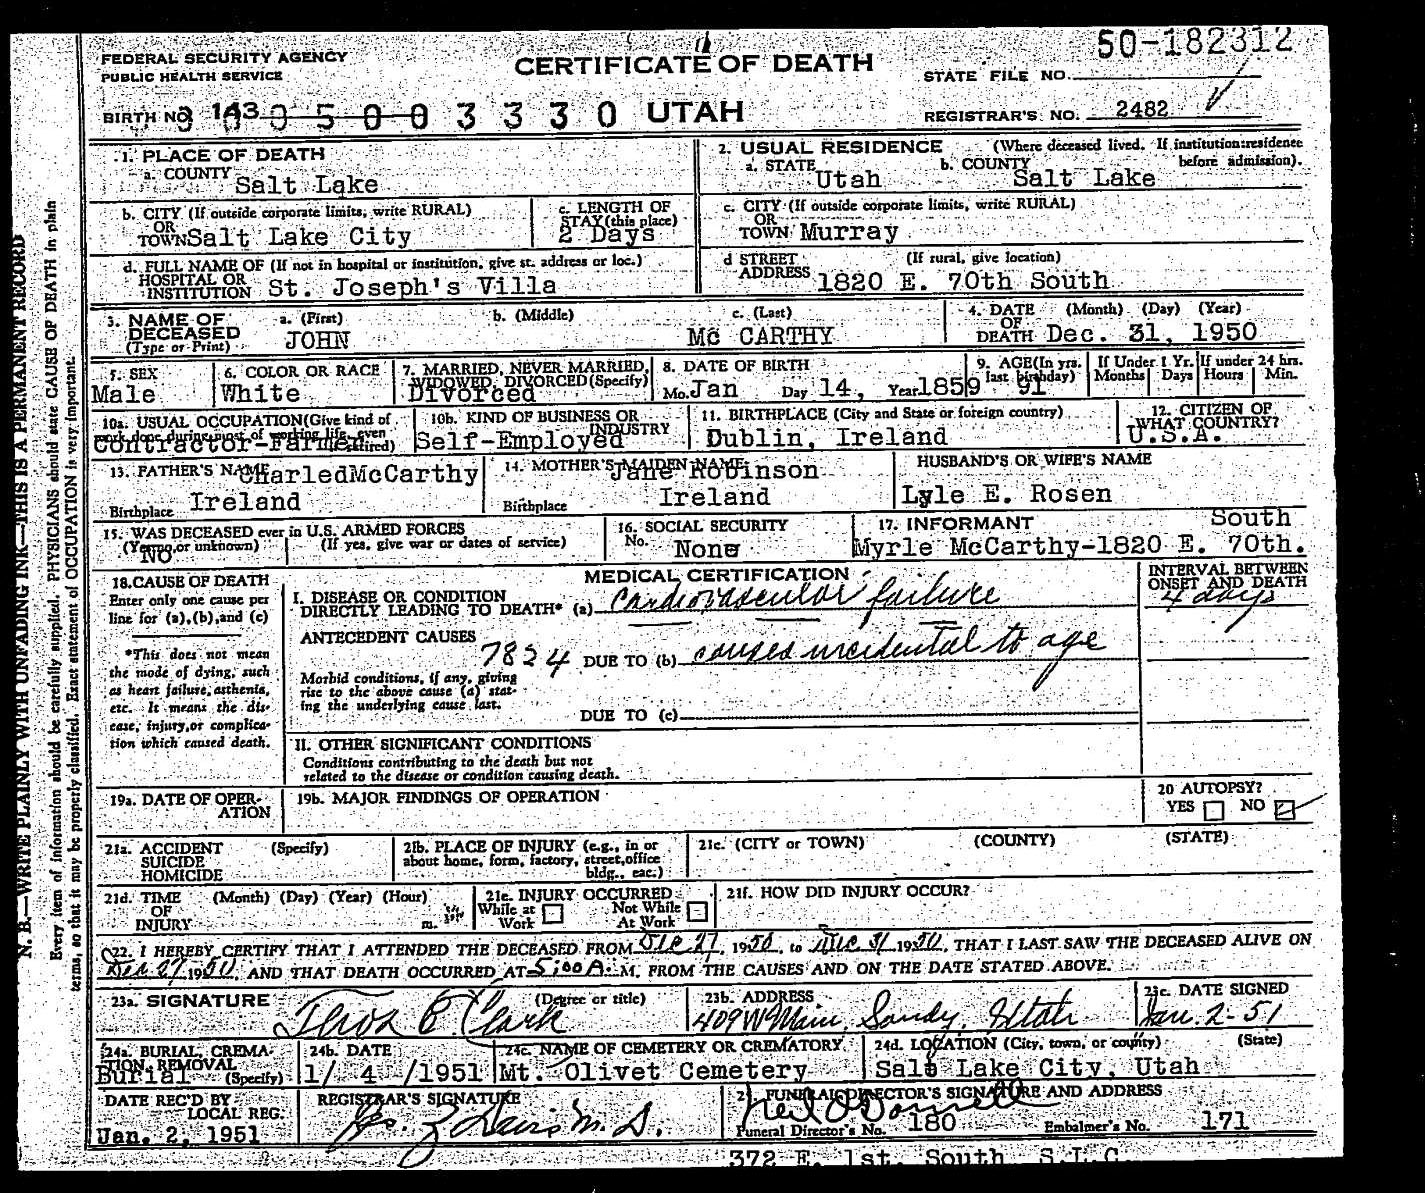 50-182312
FEDERAL SECURITY AGENCY
PUBLIC HEALTH SERVICE
CERTIFICATE OF DEATH
STATE FILE NO.
BIRTH NO. 143 3 0 0 5 0 0 3 3 3 0 UTAH
REGISTRAR'S NO. 2482
1. PLACE OF DEATH
a. COUNTY Salt Lake
2. USUAL RESIDENCE (Where deceased lived. If institution:residence before admission).
a. STATE Utah b. COUNTY Salt Lake
b. CITY (If outside corporate limits, write RURAL)
OR
TOWN Salt Lake City
c. LENGTH OF
STAY (this place)
2 Days
c. CITY (If outside corporate limits, write RURAL)
OR
TOWN Murray
d. FULL NAME OF (If not in hospital or institution, give st. address or loc.)
HOSPITAL OR
INSTITUTION St. Joseph's Villa
d STREET (If rural, give location)
ADDRESS 1820 E. 70th South
3. NAME OF DECEASED (Type or Print)
a. (First) JOHN
b. (Middle)
c. (Last) Mc CARTHY
4. DATE OF DEATH (Month) (Day) (Year)
Dec. 31, 1950
5. SEX
Male
6. COLOR OR RACE
White
7. MARRIED, NEVER MARRIED, WIDOWED, DIVORCED (Specify)
Divorced
8. DATE OF BIRTH
Mo. Jan Day 14, Year 1859
9. AGE (In yrs. last birthday)
91
If Under 1 Yr.
Months Days
If under 24 hrs.
Hours Min.
10a. USUAL OCCUPATION (Give kind of work done during most of working life, even if retired)
Contractor-Farmer
10b. KIND OF BUSINESS OR INDUSTRY
Self-Employed
11. BIRTHPLACE (City and State or foreign country)
Dublin, Ireland
12. CITIZEN OF WHAT COUNTRY?
U.S.A.
13. FATHER'S NAME CharledMcCarthy
Birthplace Ireland
14. MOTHER'S MAIDEN NAME Jane Robinson
Birthplace Ireland
HUSBAND'S OR WIFE'S NAME
Lyle E. Rosen
15. WAS DECEASED ever in U.S. ARMED FORCES
(Yes, no, or unknown) (If yes, give war or dates of service)
NO
16. SOCIAL SECURITY
No. None
17. INFORMANT South
Myrle McCarthy-1820 E. 70th.
18. CAUSE OF DEATH
Enter only one cause per
line for (a), (b), and (c)
*This does not mean
the mode of dying, such
as heart failure, asthenia,
etc. It means the dis-
ease, injury, or complica-
tion which caused death.
MEDICAL CERTIFICATION
I. DISEASE OR CONDITION
DIRECTLY LEADING TO DEATH* (a) Cardiovascular failure
INTERVAL BETWEEN
ONSET AND DEATH
4 days
ANTECEDENT CAUSES
7824 DUE TO (b) causes incidental to age
Morbid conditions, if any, giving
rise to the above cause (a) stat-
ing the underlying cause last.
DUE TO (c)
II. OTHER SIGNIFICANT CONDITIONS
Conditions contributing to the death but not
related to the disease or condition causing death.
19a. DATE OF OPER-
ATION
19b. MAJOR FINDINGS OF OPERATION
20 AUTOPSY?
YES NO
21a. ACCIDENT (Specify)
SUICIDE
HOMICIDE
21b. PLACE OF INJURY (e.g., in or
about home, form, factory, street, office
bldg., eac.)
21c. (CITY or TOWN) (COUNTY) (STATE)
21d. TIME (Month) (Day) (Year) (Hour)
OF
INJURY m.
21e. INJURY OCCURRED
While at Work Not While At Work
21f. HOW DID INJURY OCCUR?
22. I HEREBY CERTIFY THAT I ATTENDED THE DECEASED FROM Dec 27, 1950, to Dec 31 1950, THAT I LAST SAW THE DECEASED ALIVE ON
Dec. 29, 1950, AND THAT DEATH OCCURRED AT 5:00 A. M. FROM THE CAUSES AND ON THE DATE STATED ABOVE.
23a. SIGNATURE (Degree or title)
Thos B Clark
23b. ADDRESS
409 W Main, Sandy, Utah
23c. DATE SIGNED
Jan. 2-51
24a. BURIAL, CREMA-
TION, REMOVAL
Burial (Specify)
24b. DATE
1/ 4 /1951
24c. NAME OF CEMETERY OR CREMATORY
Mt. Olivet Cemetery
24d. LOCATION (City, town, or county) (State)
Salt Lake City, Utah
DATE REC'D BY
LOCAL REG.
Jan. 2, 1951
REGISTRAR'S SIGNATURE
25. FUNERAL DIRECTOR'S SIGNATURE AND ADDRESS
Neil O'Donnell
Funeral Director's No. 180 Embalmer's No. 171
372 E. 1st. South S.L.C.
N. B.—WRITE PLAINLY WITH UNFADING INK—THIS IS A PERMANENT RECORD
Every item of information should be carefully supplied. PHYSICIANS should state CAUSE OF DEATH in plain
terms, so that it may be properly classified. Exact statement of OCCUPATION is very important.